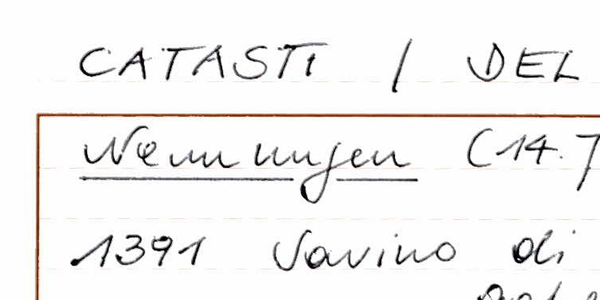 CATASTI / DEL
Nennungen (14.7
1391 Savino di